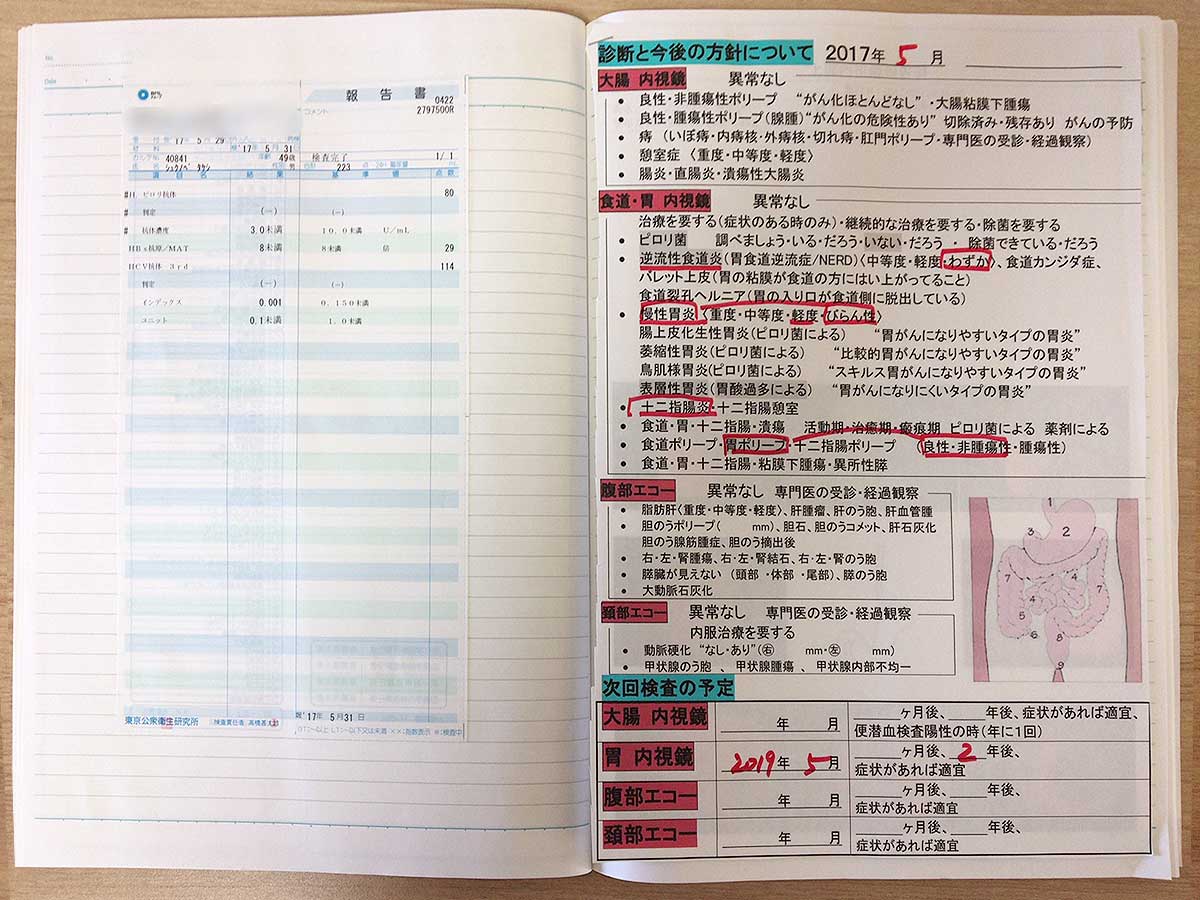 No.
Date
報告書
コメント
0422
2797500R
17年 5月 29
'17年 5月 31
40841
49歳
男
シュウノベ タカシ
検査完了
1/ 1
223
項目名 結果 基準値 点数
#H. ピロリ抗体 80
# 判定 (−) (−)
# 抗体濃度 3.0未満 10.0未満 U/mL
HBs抗原/MAT 8未満 8未満 倍 29
HCV抗体 3rd 114
判定 (−) (−)
インデックス 0.001 0.150未満
ユニット 0.1未満 1.0未満
東京公衆衛生研究所
報 '17年 5月31日
診断と今後の方針について 2017年 5 月
大腸 内視鏡 異常なし
• 良性・非腫瘍性ポリープ “がん化ほとんどなし”・大腸粘膜下腫瘍
• 良性・腫瘍性ポリープ(腺腫)“がん化の危険性あり” 切除済み・残存あり がんの予防
• 痔 (いぼ痔・内痔核・外痔核・切れ痔・肛門ポリープ・専門医の受診・経過観察)
• 憩室症 〈重度・中等度・軽度〉
• 腸炎・直腸炎・潰瘍性大腸炎
食道・胃 内視鏡 異常なし
治療を要する(症状のある時のみ)・継続的な治療を要する・除菌を要する
• ピロリ菌 調べましょう・いる・だろう・いない・だろう ・ 除菌できている・だろう
• 逆流性食道炎(胃食道逆流症/NERD)〈中等度・軽度・わずか〉、食道カンジダ症、
バレット上皮(胃の粘膜が食道の方にはい上がってること)
食道裂孔ヘルニア(胃の入り口が食道側に脱出している)
• 慢性胃炎〈重度・中等度・軽度・びらん性〉
腸上皮化生性胃炎(ピロリ菌による) “胃がんになりやすいタイプの胃炎”
萎縮性胃炎(ピロリ菌による) “比較的胃がんになりやすいタイプの胃炎”
鳥肌様胃炎(ピロリ菌による) “スキルス胃がんになりやすいタイプの胃炎”
表層性胃炎(胃酸過多による) “胃がんになりにくいタイプの胃炎”
• 十二指腸炎・十二指腸憩室
• 食道・胃・十二指腸・潰瘍 活動期・治癒期・瘢痕期 ピロリ菌による 薬剤による
• 食道ポリープ・胃ポリープ・十二指腸ポリープ (良性・非腫瘍性・腫瘍性)
• 食道・胃・十二指腸・粘膜下腫瘍・異所性膵
腹部エコー 異常なし 専門医の受診・経過観察
• 脂肪肝〈重度・中等度・軽度〉、肝腫瘤、肝のう胞、肝血管腫
• 胆のうポリープ( mm)、胆石、胆のうコメット、肝石灰化
胆のう腺筋腫症、胆のう摘出後
• 右・左・腎腫瘍、右・左・腎結石、右・左・腎のう胞
• 膵臓が見えない (頭部 ・体部 ・尾部)、膵のう胞
• 大動脈石灰化
1
2
3
4
7
7
5
6
8
9
頚部エコー 異常なし 専門医の受診・経過観察
内服治療を要する
• 動脈硬化 “なし・あり”(㊨ mm・㊧ mm)
• 甲状腺のう胞 、甲状腺腫瘍 、甲状腺内部不均一
次回検査の予定
大腸 内視鏡 年 月 ヶ月後、 年後、症状があれば適宜、
便潜血検査陽性の時(年に1回)
胃 内視鏡 2019年 5月 ヶ月後、 2 年後、
症状があれば適宜
腹部エコー 年 月 ヶ月後、 年後、
症状があれば適宜
頚部エコー 年 月 ヶ月後、 年後、
症状があれば適宜